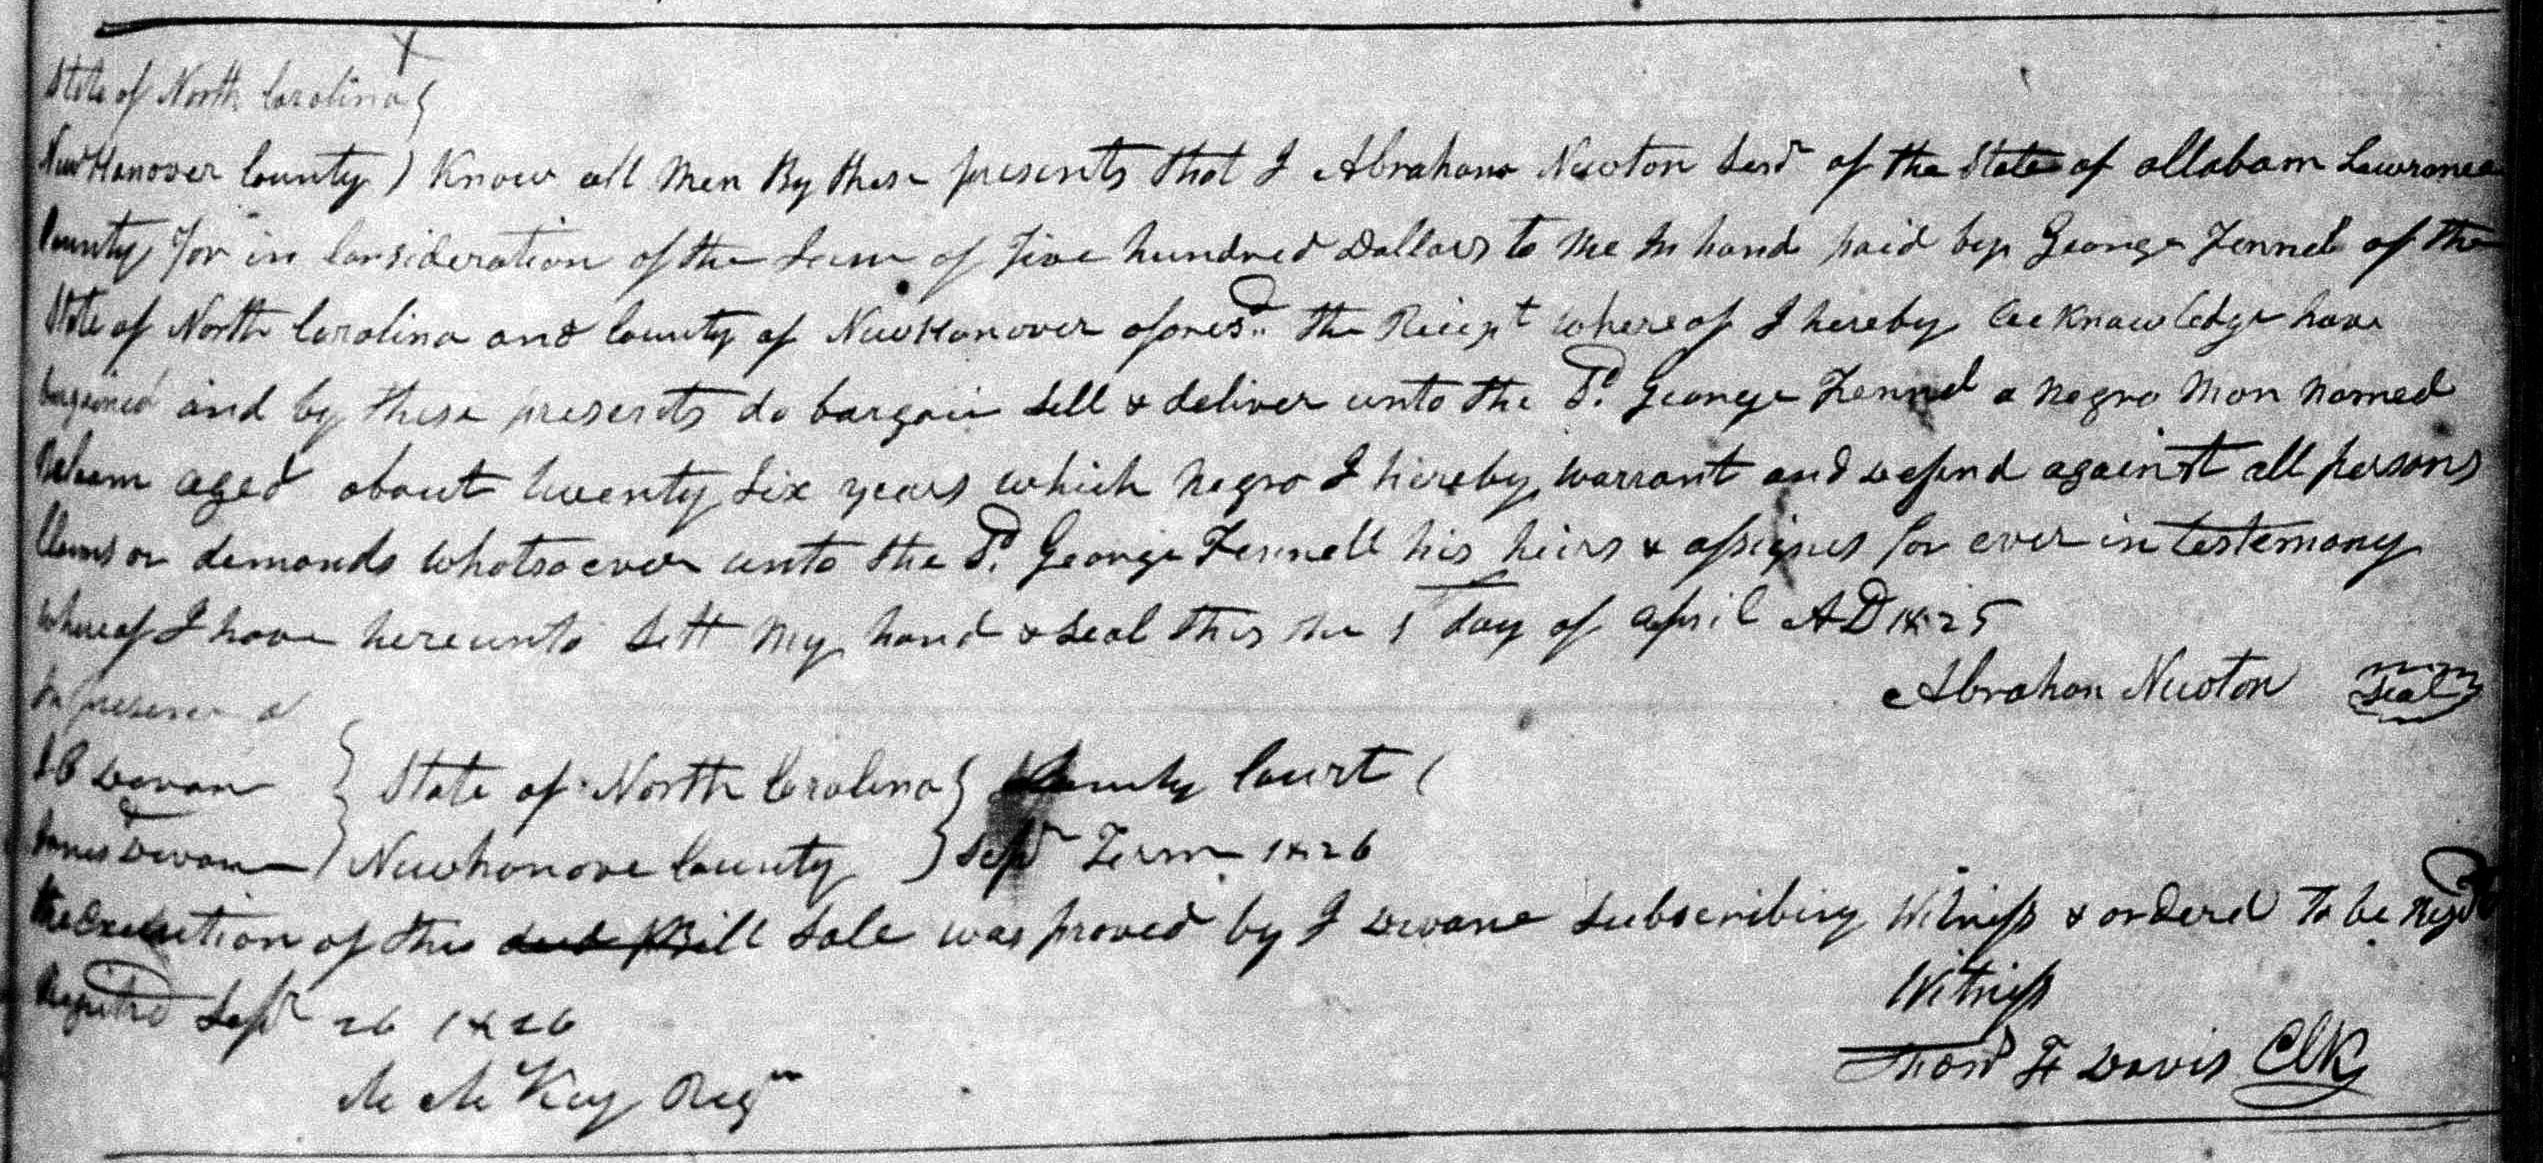 State of North Carolina
New Hanover County) Know all Men By these presents that I Abraham Newton Senr of the State of allabam Lawrence
County for in Consideration of the Sum of five hundred Dollars to Me In hand paid by George Fennel of the
State of North Carolina and County of New Hanover afores.d the Reciept whereof I hereby acknowledge have
bargained and by these presents do bargain Sell & deliver unto the Sd. George Fennel a negro Man Named
aged about twenty Six years which negro I hereby warrant and defend against all persons
Claims or demands whatsoever unto the Sd. George Fennell his heirs & assignes for ever in testemony
whereof I have hereunto Sett My hand & Seal this the 1st day of april AD 1825
Abraham Newton Seal
In presence of
State of North Carolina } County Court
James Devane ) Newhanove County } Sepr Term 1826
the Execution of this Bill Sale was proved by J Devane Subscribing Witness & ordered to be Regd
Witness
Registrd Sepr 26 1826
Thos F Davis Clk
McKay Regr